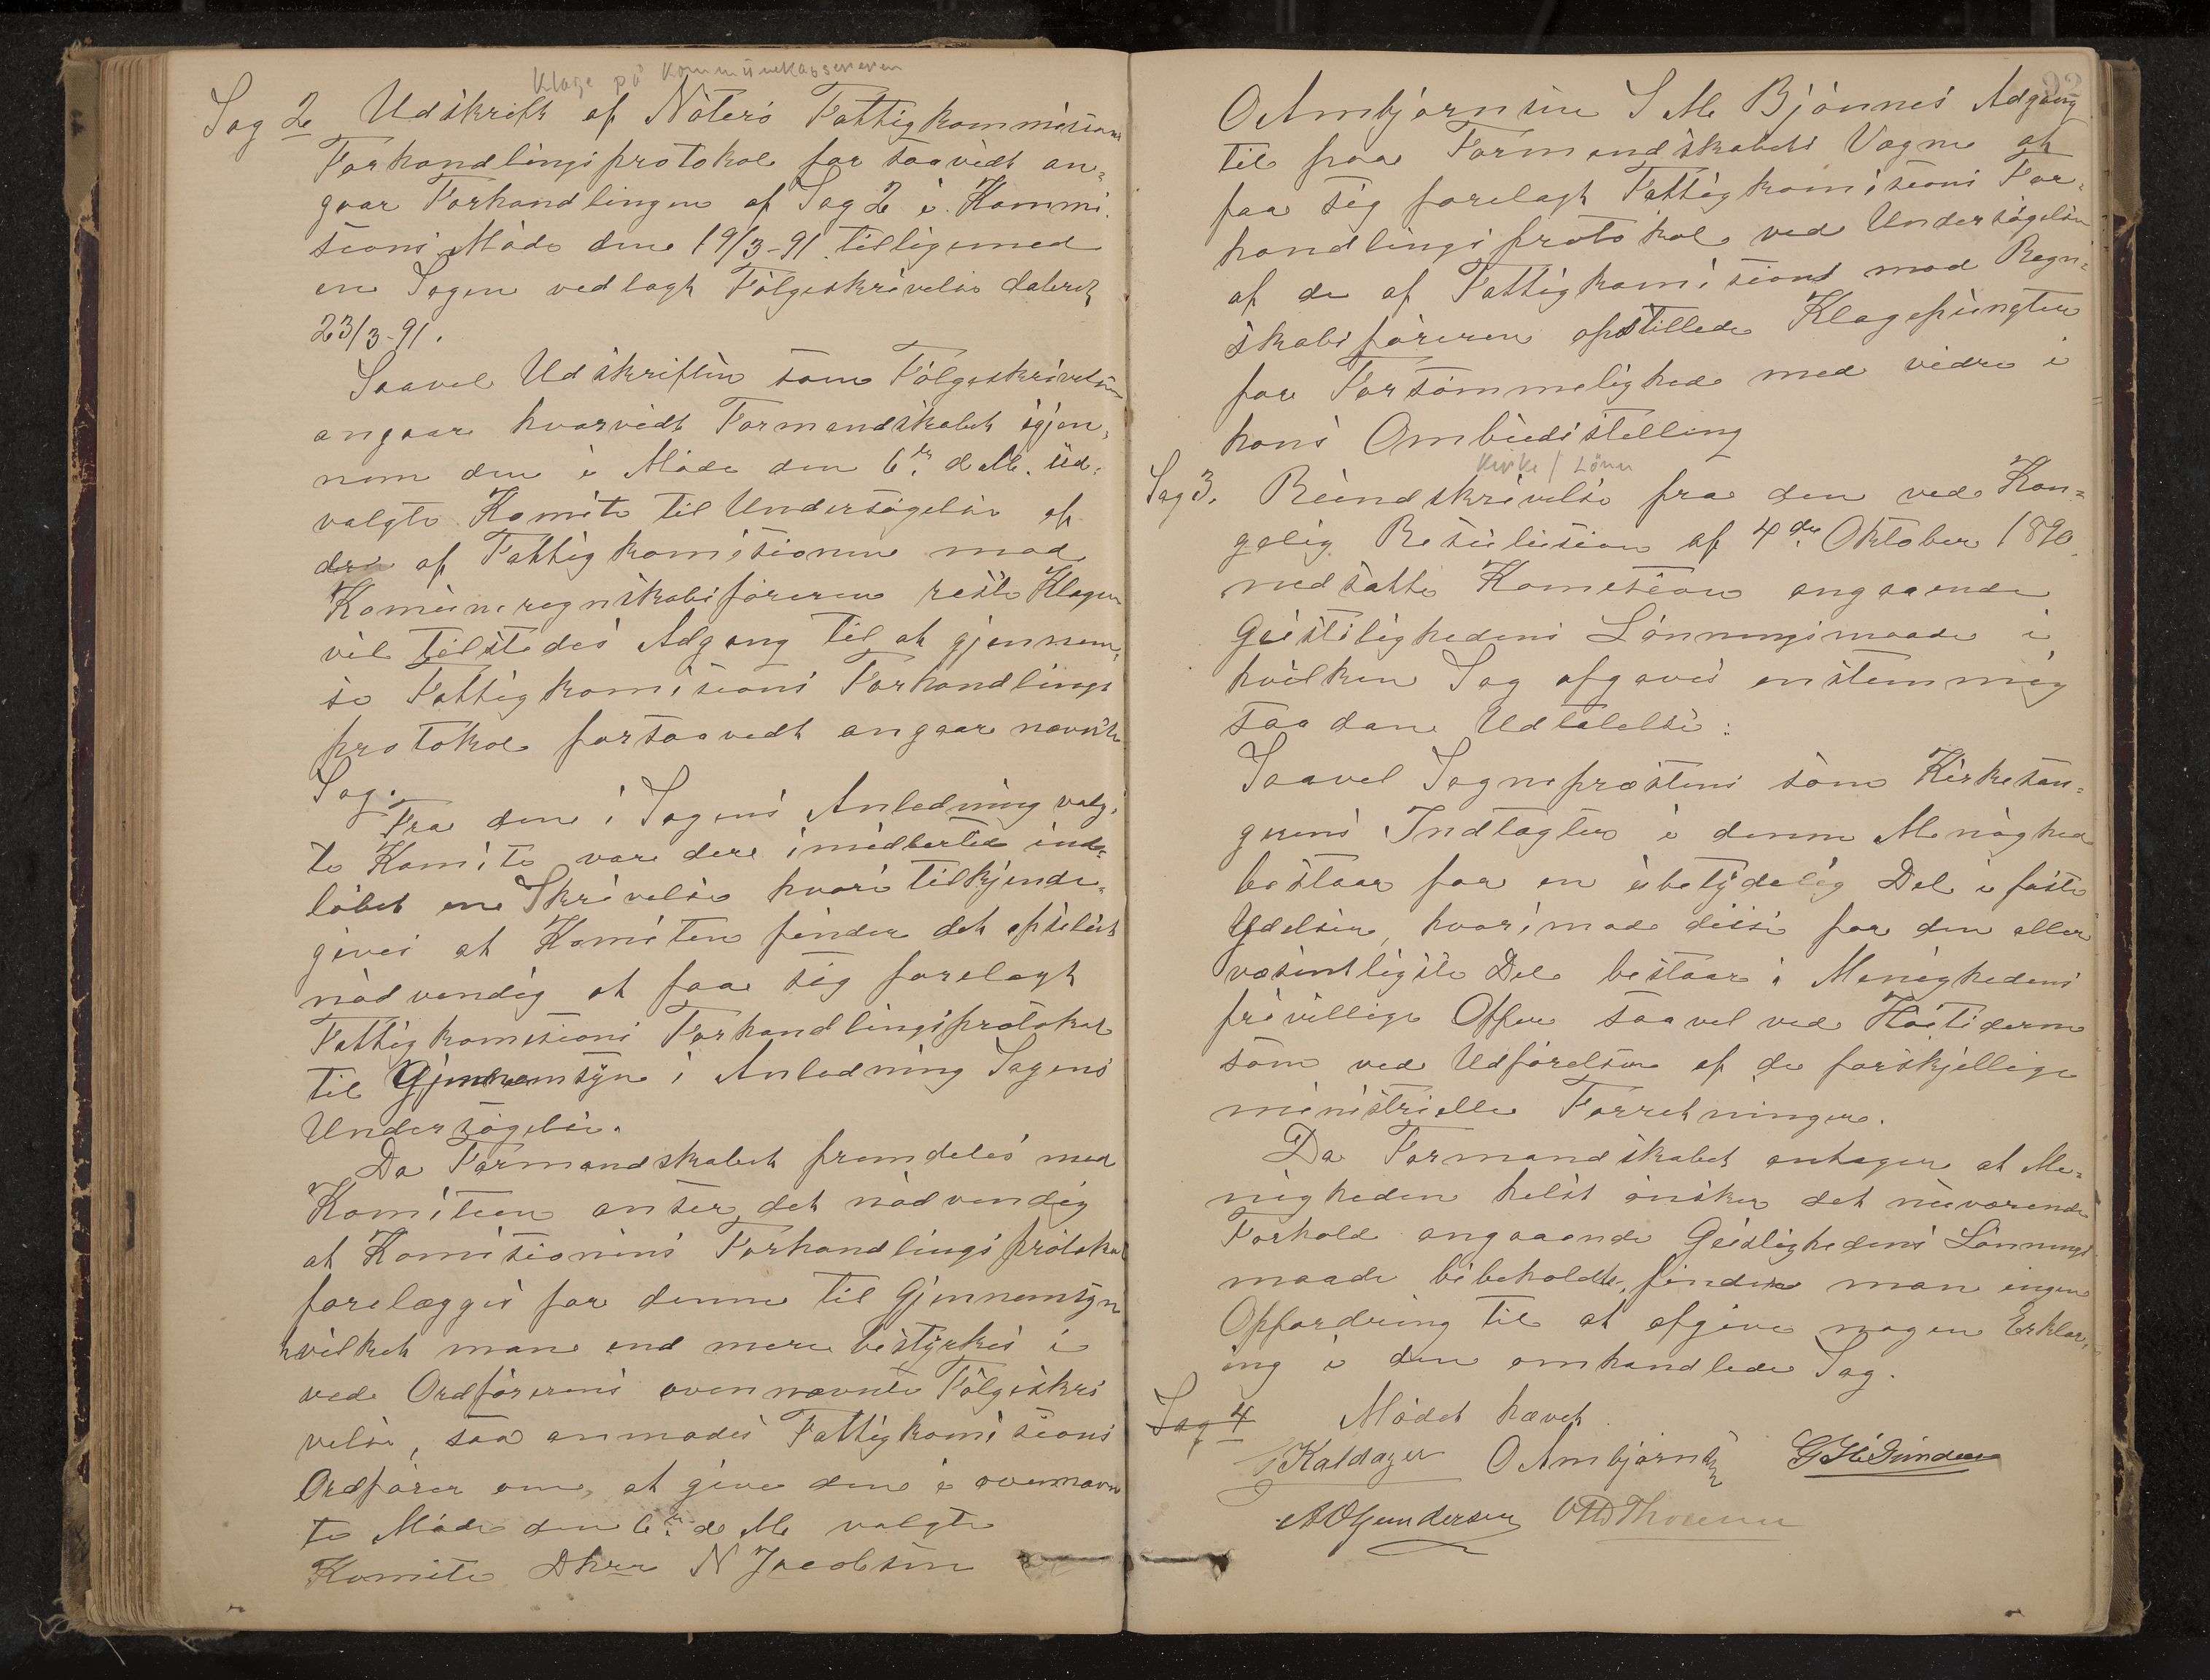 Klage på Kommunekassereren
Sag 2 Udskrift af Nøterø Fattigkommissions
Forhandlingsprotokol for saavidt an-
gaar Forhandlingen af Sag 2 i Kommi-
sions Møde den 19/3-91 tilligemed
en Sagen vedlagt Følgeskrivelse dateret
23/3-91.
Saavel Udskriften som Følgeskrivelsen
angaar hvorvidt Formandskabet igjen-
nem den i Møde den 6te d. M. ud-
valgte Komite til Undersøgelse af
de af Fattigkomisionen mod
Komuneregnskabsføreren reiste Klager
vil tilstedes Adgang til at gjennem-
se Fattigkomisions Forhandlings
protokol forsaavidt angaar nævnte
Sag.
Fra den i Sagens Anledning valg-
te Komite var der imidlertid ind-
løbet en Skrivelse hvori tilkjende-
gives at Komiten finder det absolut
nødvendig at faa sig forelagt
Fattigkomisions Forhandlingsprotokol
til Gjennemsyn i Anledning Sagens
Undersøgelse.
Da Formandskabet fremdeles med
Komiteen anser det nødvendig
at Komisionens Forhandlingsprotokol
forelægges for denne til Gjennemsyn
hvilket man end mere bestyrkes i
ved Ordførerens ovennævnte Følgeskri
velse, saa anmodes Fattigkomisions
Ordfører om, at give den i ovennævn
te Møde den 6te d. M. valgte
Komite Dhrr N Jacobsen
O Ambjørnsen S M Bjønnes Adgang
til paa Formandskabets Vegne at
faa sig forelagt Fattigkomisions For-
handlingsprotokol ved Undersøgelsen
af de af Fattigkomisions mod Regn-
skabsføreren opstillede Klagepungter
for Forsømmelighed med videre i
hans Ombudsstilling
Kirke / Lønn
Sag 3. Rundskrivelse fra den ved Kon-
gelig Resulusion af 4de Oktober 1890
nedsatte Komision angaaende
Geistlighedens Lønningsmaade i
hvilken Sag afgaves enstemmig
saadan Udtalelse:
Saavel Sogneprestens som Kirkesan-
gerens Indtægter i denne Menighed
bestaar for en ubetydelig Del i faste
Ydelser, hvorimod disse for den aller
væsentligste Del bestaar i Menighedens
frivillige Offer saavel ved Høitiderne
som ved Udførelsen af de forskjellige
ministrielle Forretninger.
Da Formandskabet antager at Me-
nigheden helst ønsker det nuværende
Forhold angaaende Geistlighedens Lønnings-
maade bibeholdt, finder man ingen
Opfordring til at afgive nogen Erklær-
ing i den omhandlede Sag.
Sag 4 Mødet hævet.
Kaldager O Ambjørnsen
A O Gundersen